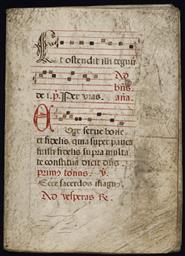 Et ostendit illi regnū
Ad
de i. p. Per vias. bn̄s. an̄a.
Euge serve bone
et fidelis, quia super pauca
fuisti fidelis supra multa
te constituā dicit dn̄s.
primus tonus. v.
Ecce sacerdos magn
Ad vesperas